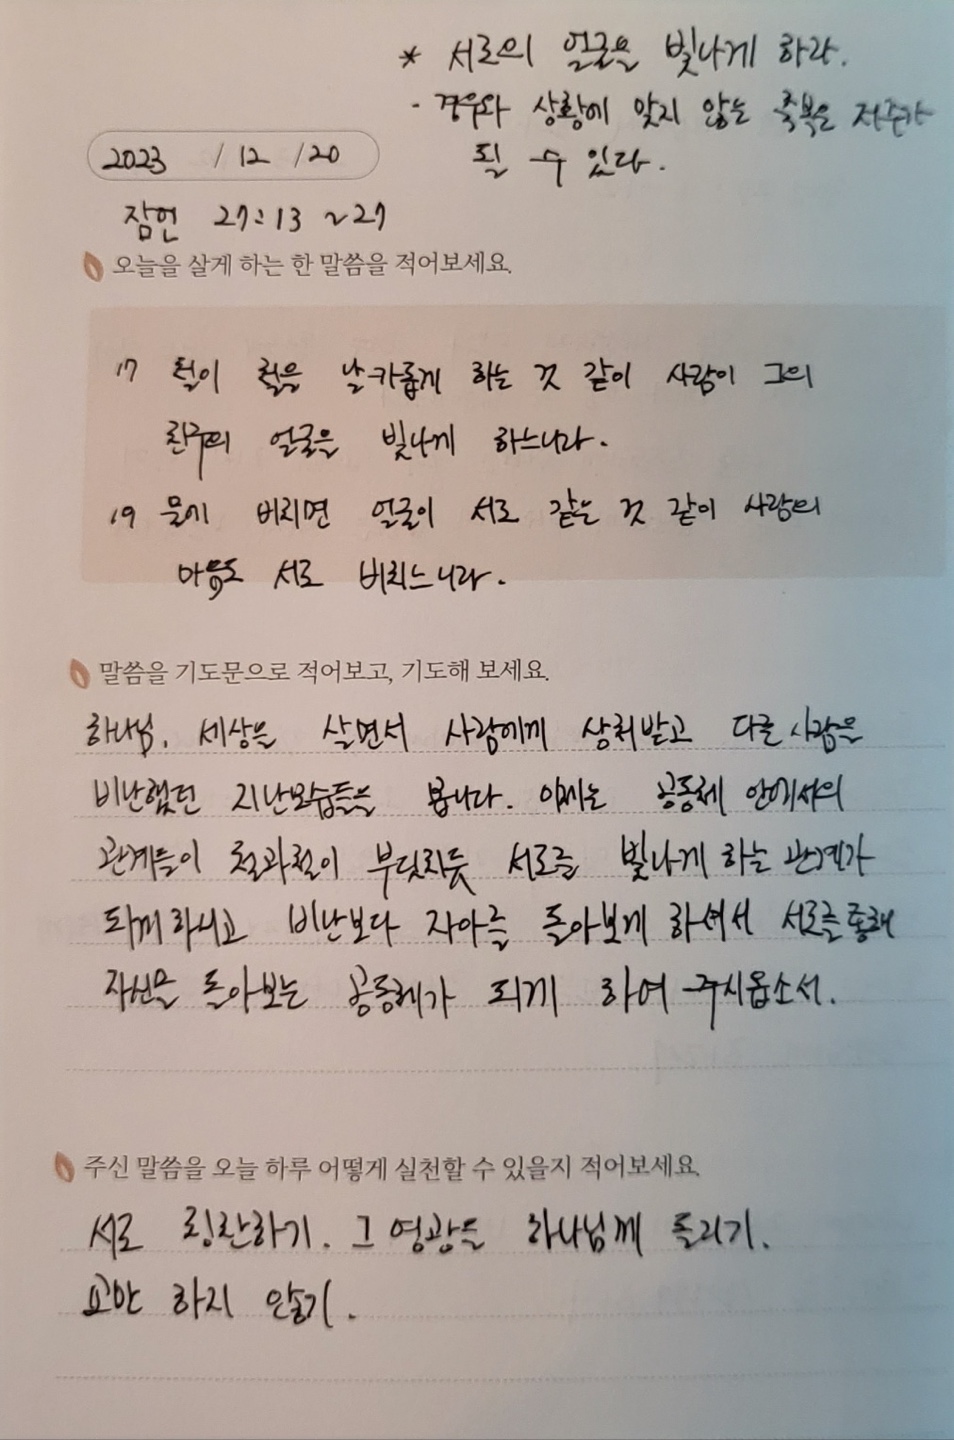 * 서로의 얼굴을 빛나게 하라.
- 경우와 상황에 맞지 않는 축복은 저주가
될 수 있다.
2023 / 12 / 20
잠언 27:13 ~27
오늘을 살게 하는 한 말씀을 적어보세요.
17 철이 철을 날카롭게 하는 것 같이 사람이 그의
친구의 얼굴을 빛나게 하느니라.
19 물에 비치면 얼굴이 서로 같은 것 같이 사람의
마음도 서로 비치느니라.
말씀을 기도문으로 적어보고, 기도해 보세요.
하나님, 세상을 살면서 사람에게 상처받고 다른 사람을
비난했던 지난모습들을 봅니다. 이제는 공동체 안에서의
관계들이 철과철이 부딪치듯 서로를 빛나게 하는 관계가
되게 하시고 비난보다 자아를 돌아보게 하셔서 서로를 통해
자신을 돌아보는 공동체가 되게 하여 주시옵소서.
주신 말씀을 오늘 하루 어떻게 실천할 수 있을지 적어보세요.
서로 칭찬하기. 그 영광을 하나님께 돌리기.
교만 하지 않기.